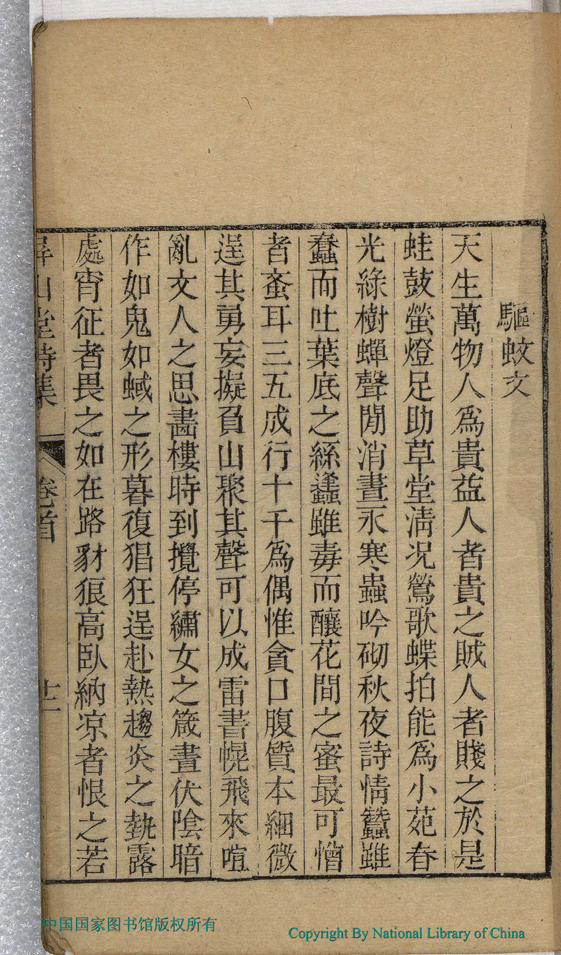 驅蚊文
天生萬物人爲貴益人者貴之賊人者賤之於是
蛙鼓螢燈足助草堂淸况鶯歌蝶拍能爲小苑春
光綠樹蟬聲閒消晝永寒蟲吟砌秋夜詩情蠶雖
蠢而吐葉底之絲蠭雖毒而釀花間之蜜最可憎
者蚉耳三五成行十千爲偶惟貪口腹質本細微
逞其勇妄擬負山聚其聲可以成雷書幌飛來喧
亂文人之思畵樓時到攪停繡女之箴晝伏陰暗
作如鬼如蜮之形暮復猖狂逞赴熱趨炎之埶露
處宵征者畏之如在路豺狼高臥納凉者恨之若
屏山堂詩集
卷首
十一
中国国家图书馆版权所有
Copyright By National Library of China